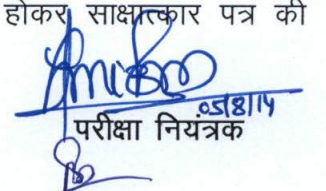 होकर साक्षात्कार पत्र की
05/8/14
परीक्षा नियंत्रक